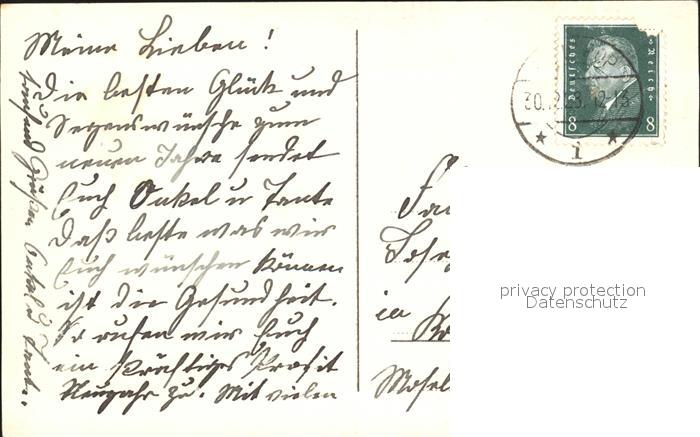 Meine Lieben!
Die besten Glück und
Segenswünsche zum
neuen Jahre sendet
Euch Onkel u Tante
Daß beste was wir
Euch wünschen können
ist die Gesundheit.
So rufen wir Euch
ein kräftiges Prosit
Neujahr zu. Mit vielen
und Grüßen Onkel u Tante.
Deutsches Reich
8 8
30.12.28.12-13
* i *
Fa
Jose
in
Mosel
privacy protection
Datenschutz